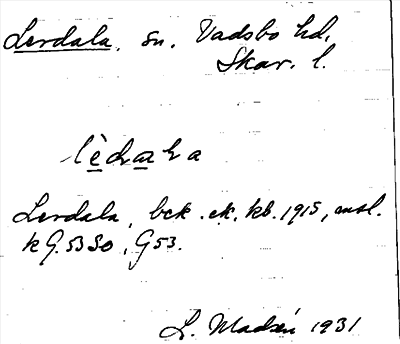 Lerdala, sn. Vadsbo hd,
Skar. l.
lèdala
Lerdala, bek. ek. kb. 1915,
k G. 53 SO, G 53.
L. Modéer 1931